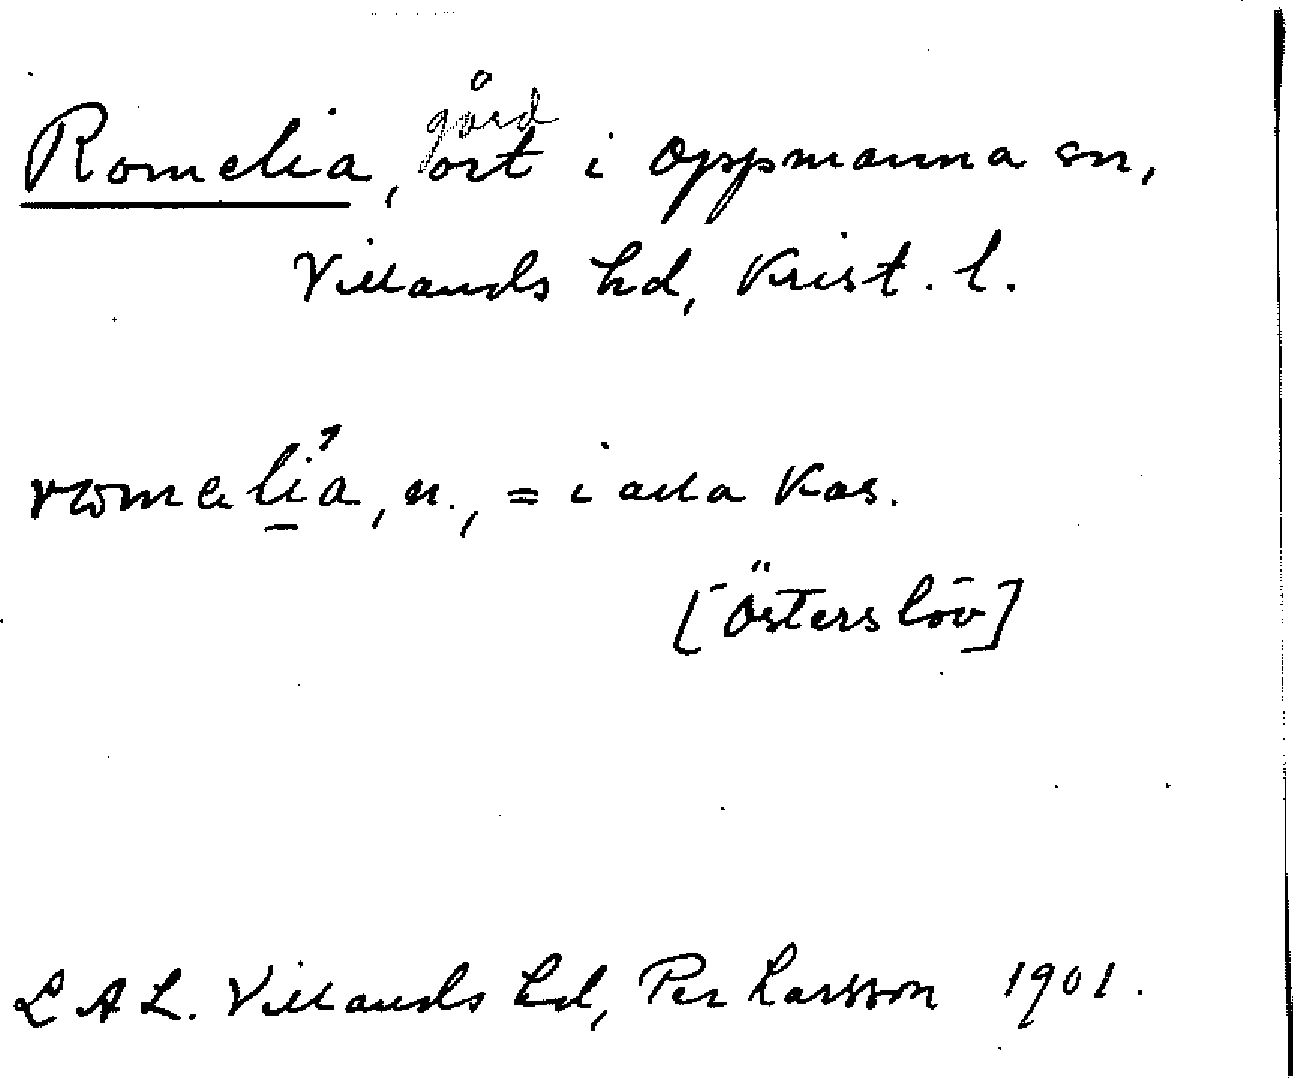 gård
Romelia, ort i Oppmanna sn,
Villands hd, Krist. l.
romalia, n., = i alla Kas.
[Österslöv]
L A L. Villands hd, Per Larsson 1901.